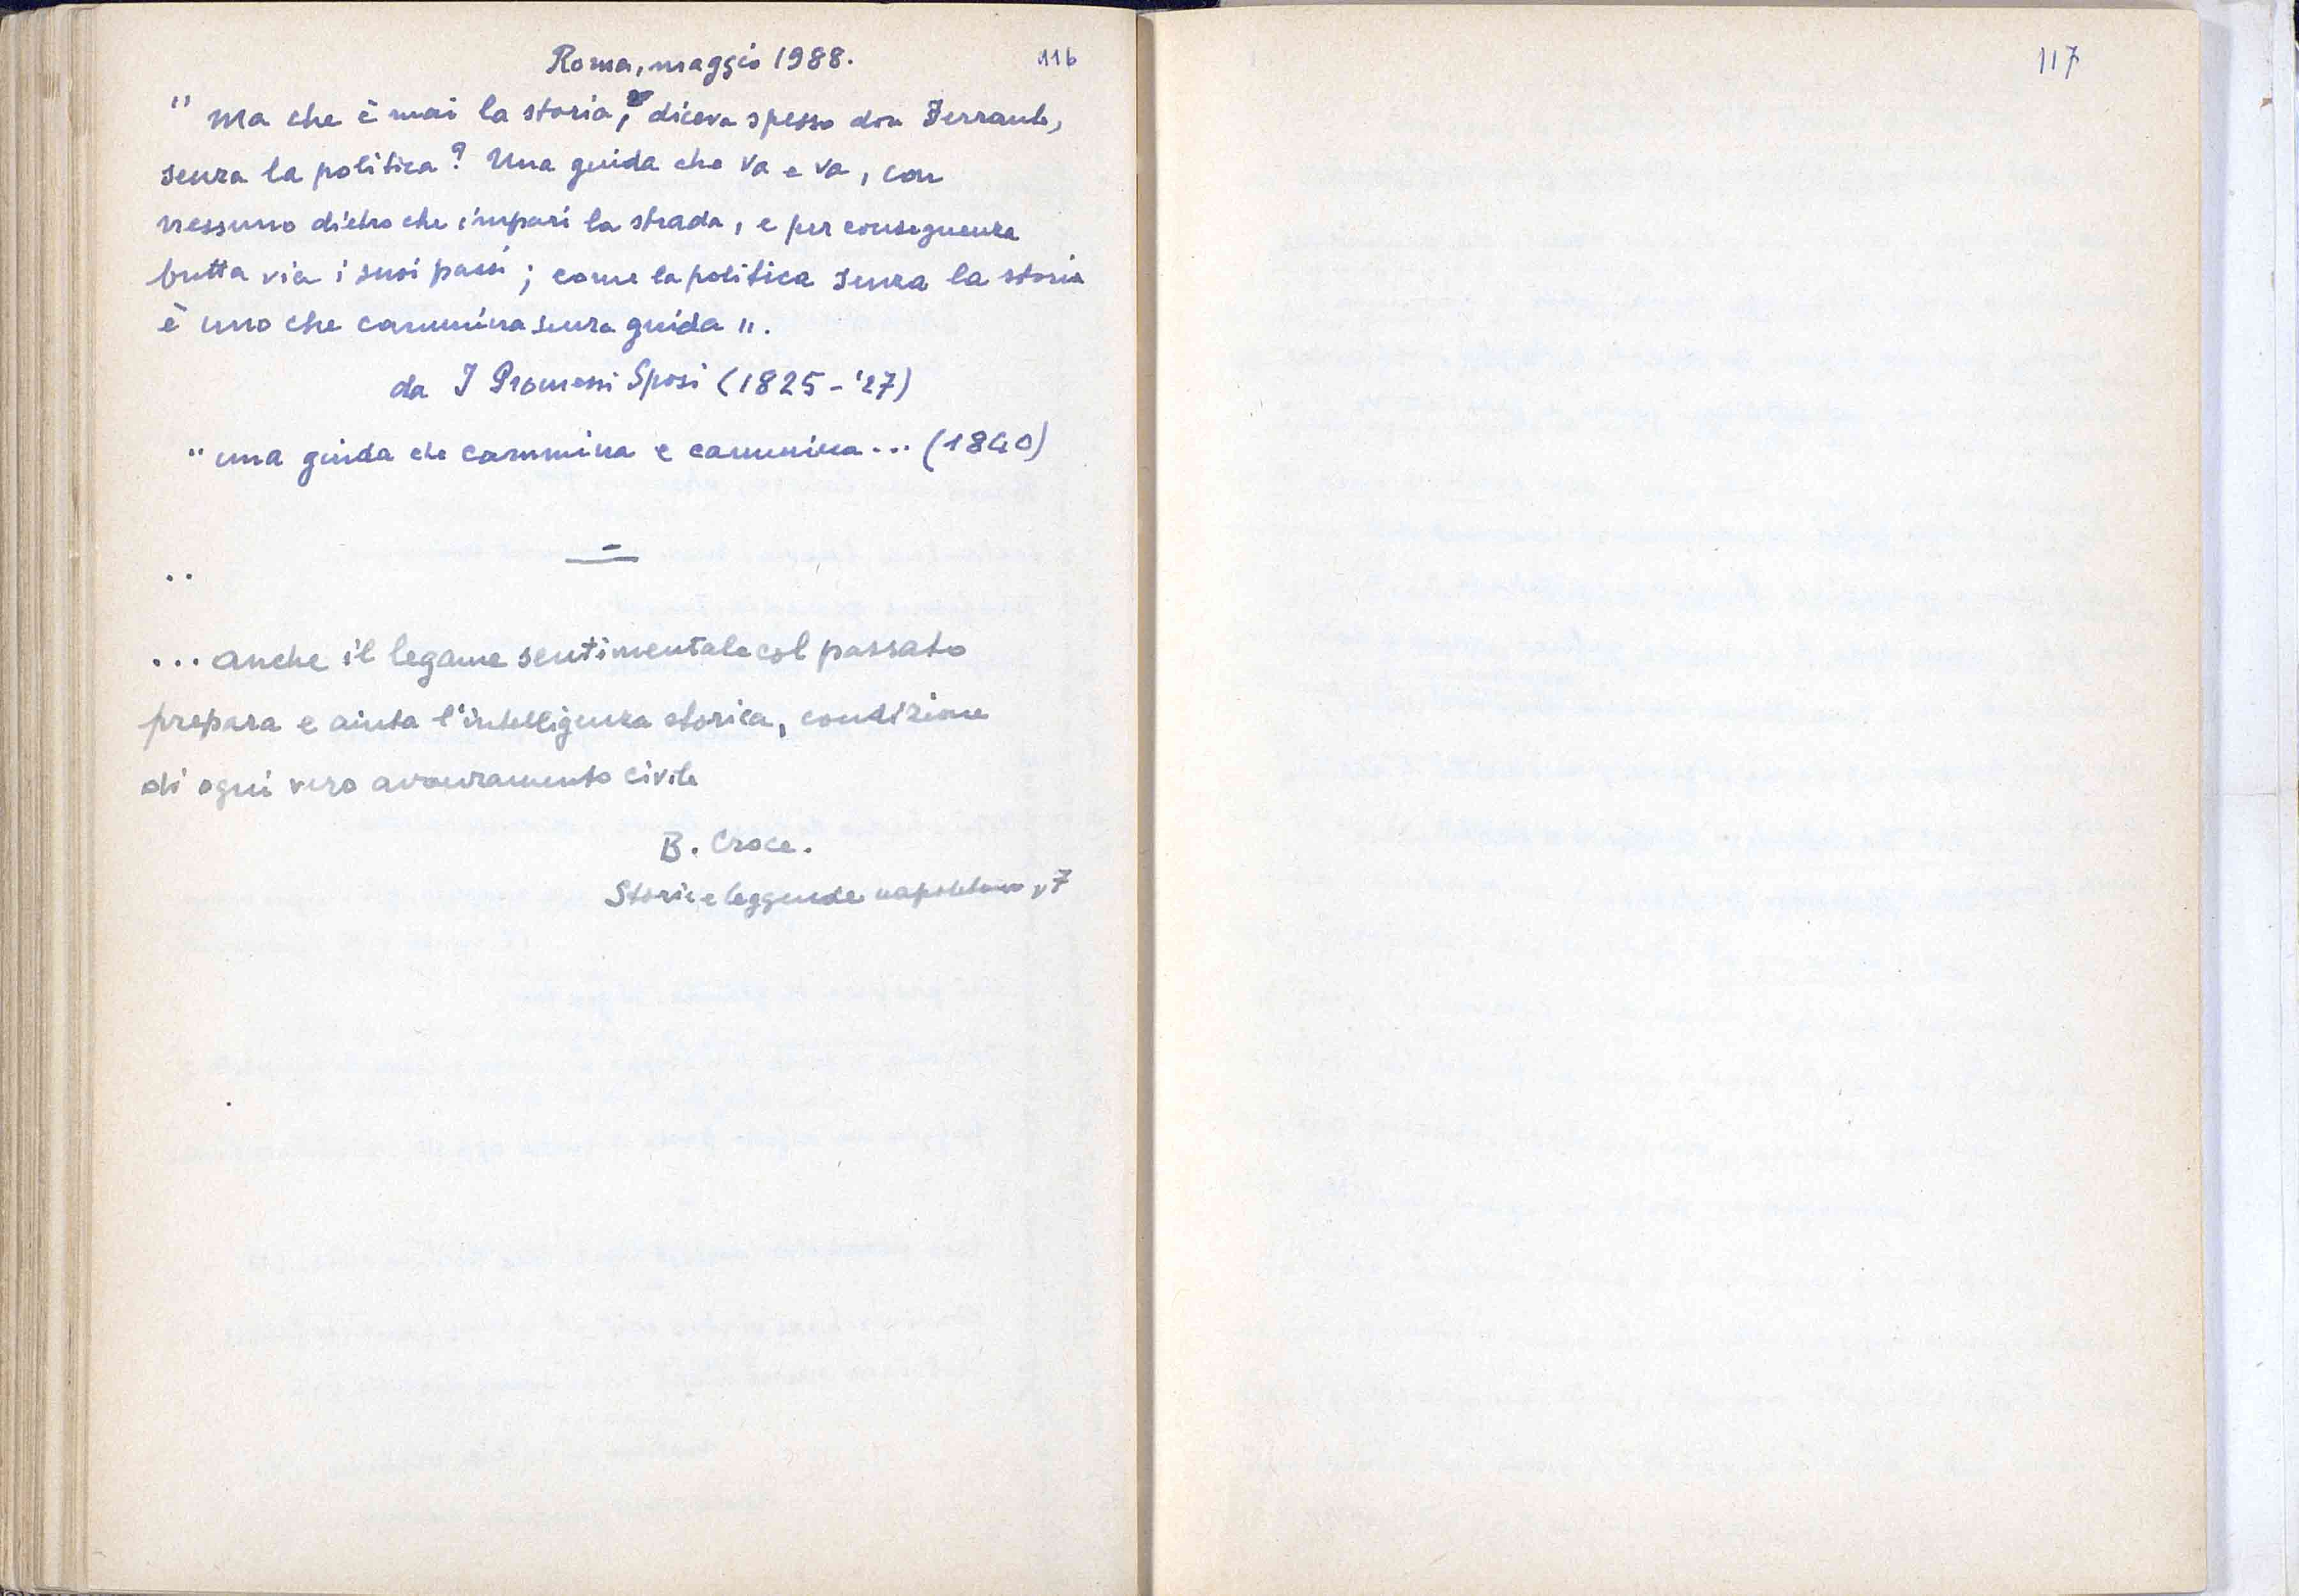 Roma, maggio 1988.
116
" Ma che è mai la storia, diceva spesso don Ferrante,
senza la politica? Una guida che va e va, con
nessuno dietro che impari la strada, e per conseguenza
butta via i suoi passi; come la politica senza la storia
è uno che cammina senza guida ".
da I Promessi Sposi (1825-'27)
" una guida che cammina e cammina... (1840)
..
... anche il legame sentimentale col passato
prepara e aiuta l'intelligenza storica, condizione
di ogni vero avanzamento civile
B. Croce.
Storie e leggende napoletane, 7
117